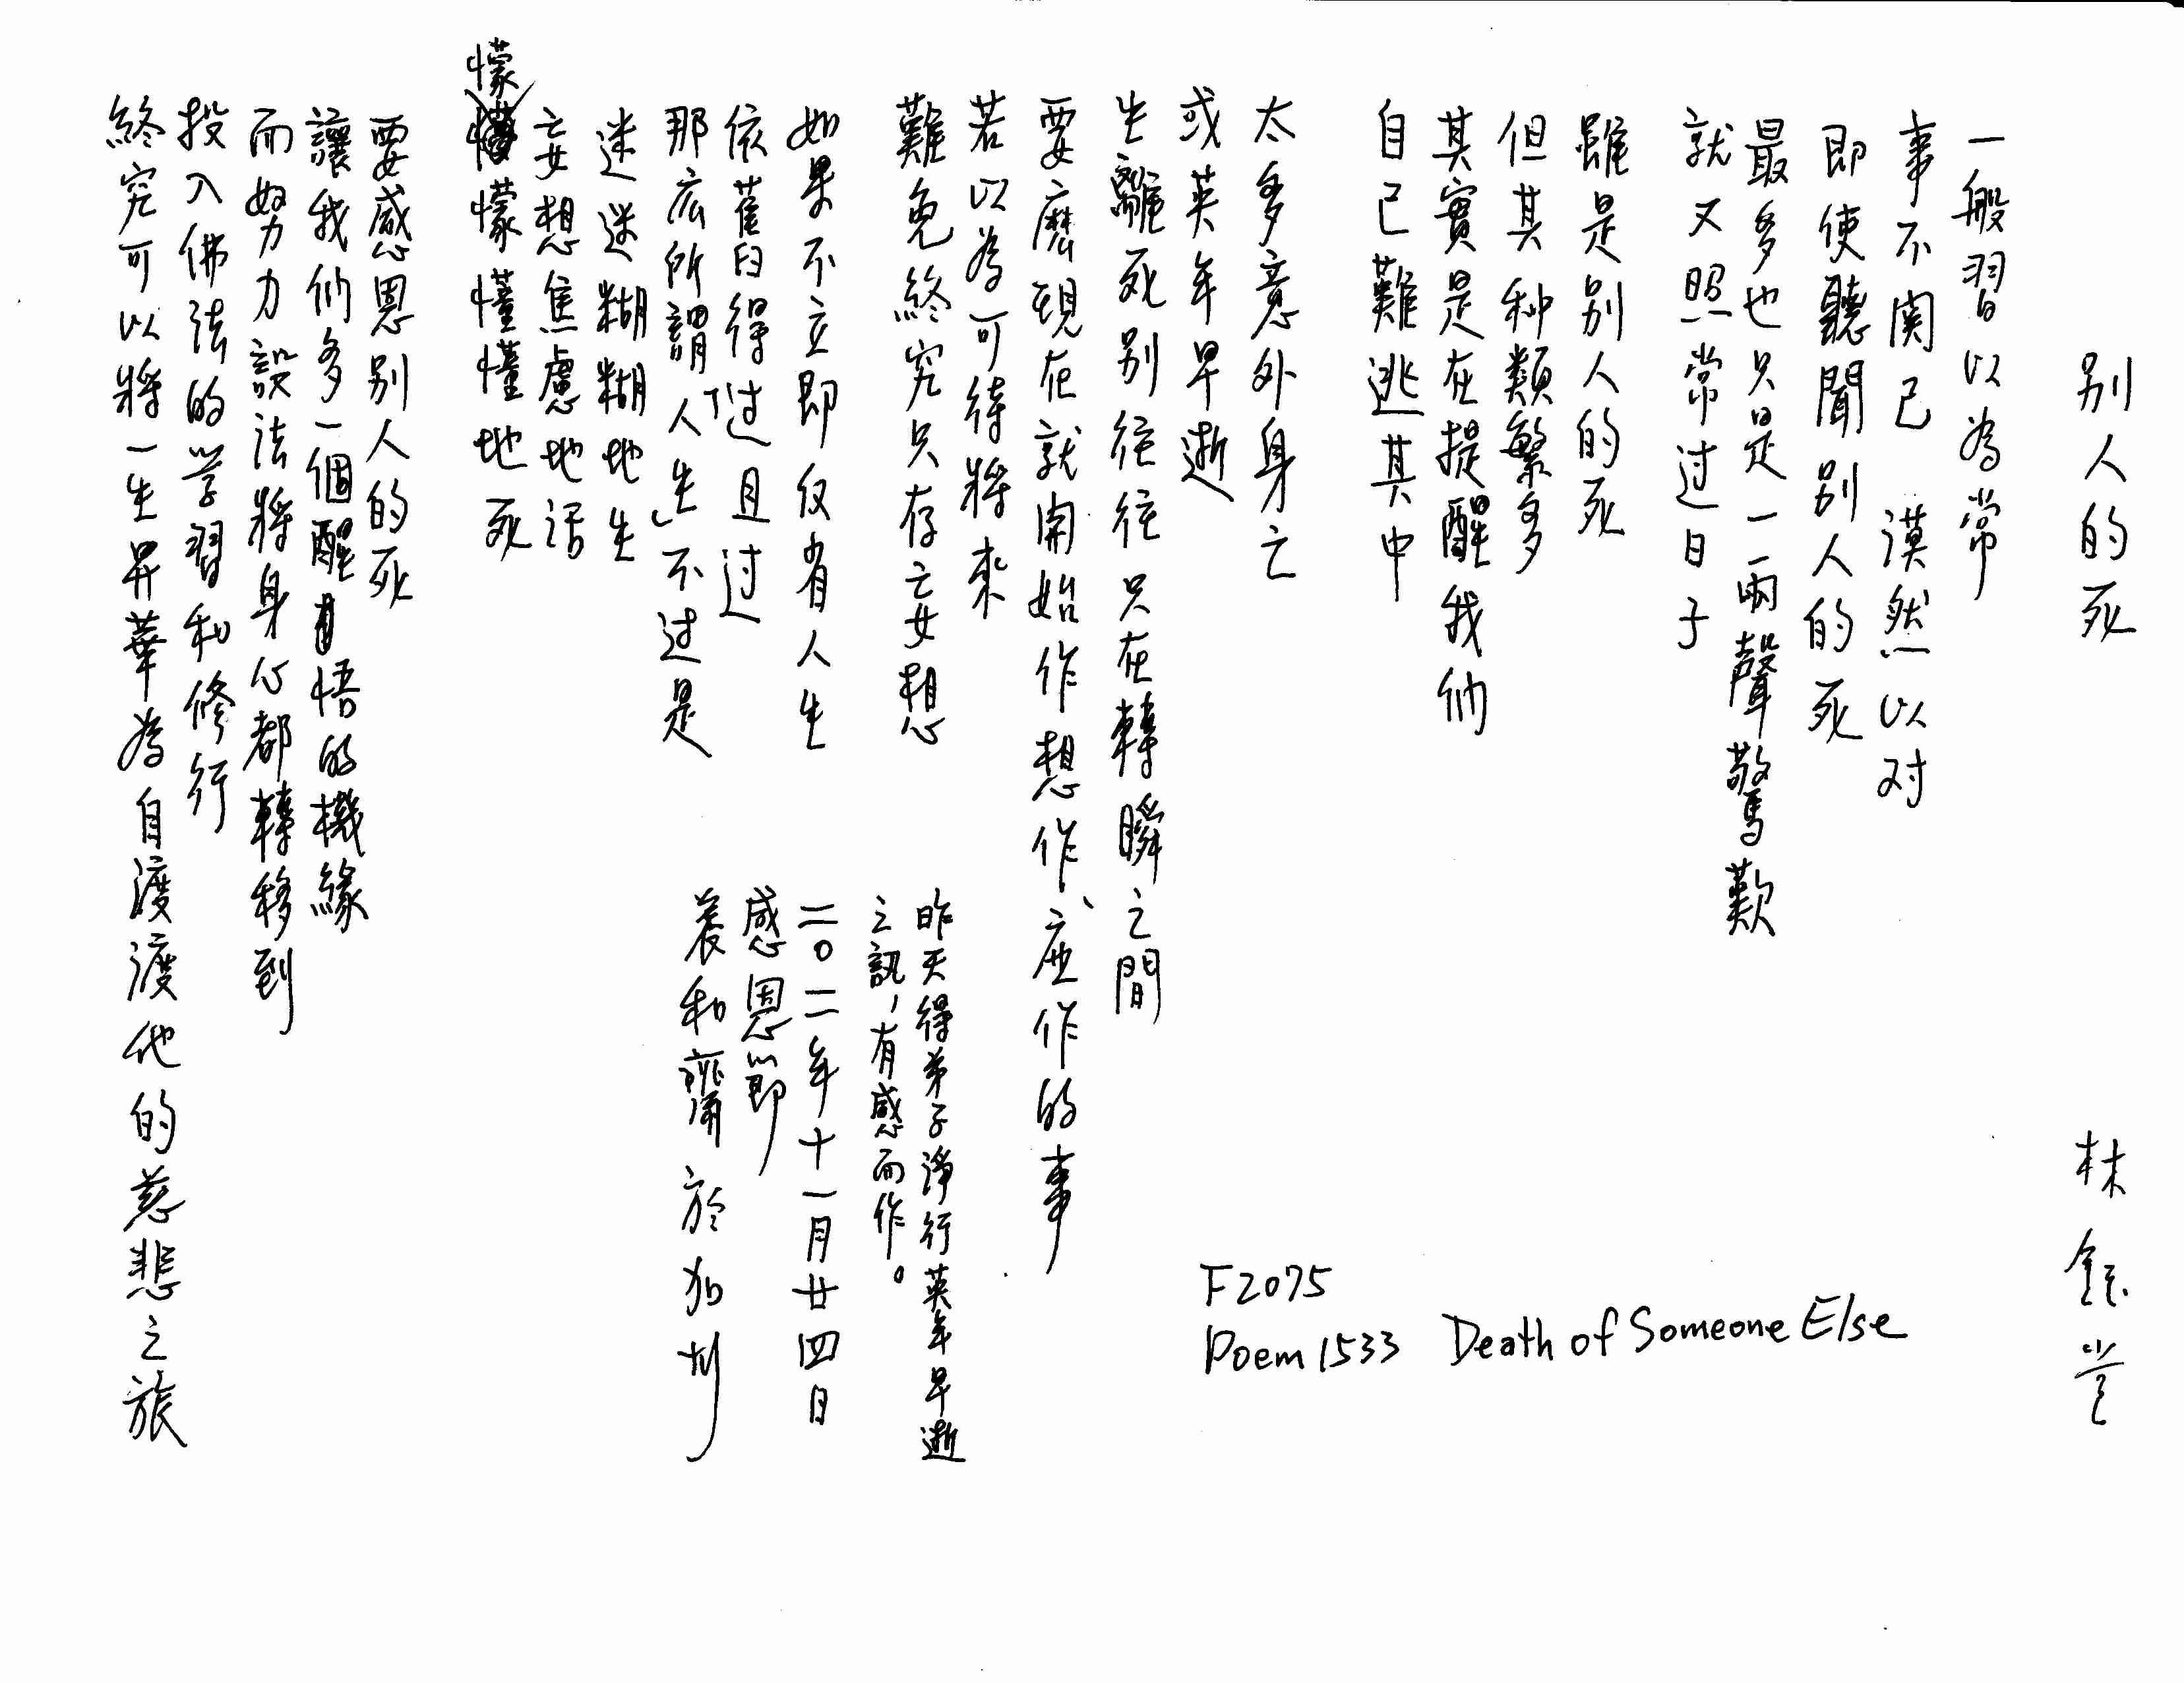 别人的死 林鈺堂
一般習以為常
事不関己 漠然以对
即使聽聞别人的死
最多也只是一兩聲驚歎
就又照常过日子
雖是别人的死
但其种類繁多
其實是在提醒我们
自己難逃其中
太多意外身亡
或英年早逝
生離死别往往只在轉瞬之間
要麽現在就開始作想作、应作的事
若以為可待將來
難免終究只存妄想
如果不立即仅省人生
依舊得过且过
那広所謂「人生」不过是
迷迷糊糊地生
妄想焦慮地活
懞懞懂懂地死
要感恩别人的死
讓我们多一個醒悟的機緣
而努力設法將身心都轉移到
投入佛法的学習和修行
終究可以將一生昇華為自渡渡他的慈悲之旅
昨天得弟子淨行英年早逝
之訊，有感而作。
二〇二二年十一月廿四日
感恩節
養和齋 於加州
F2075
Poem 1533 Death of Someone Else